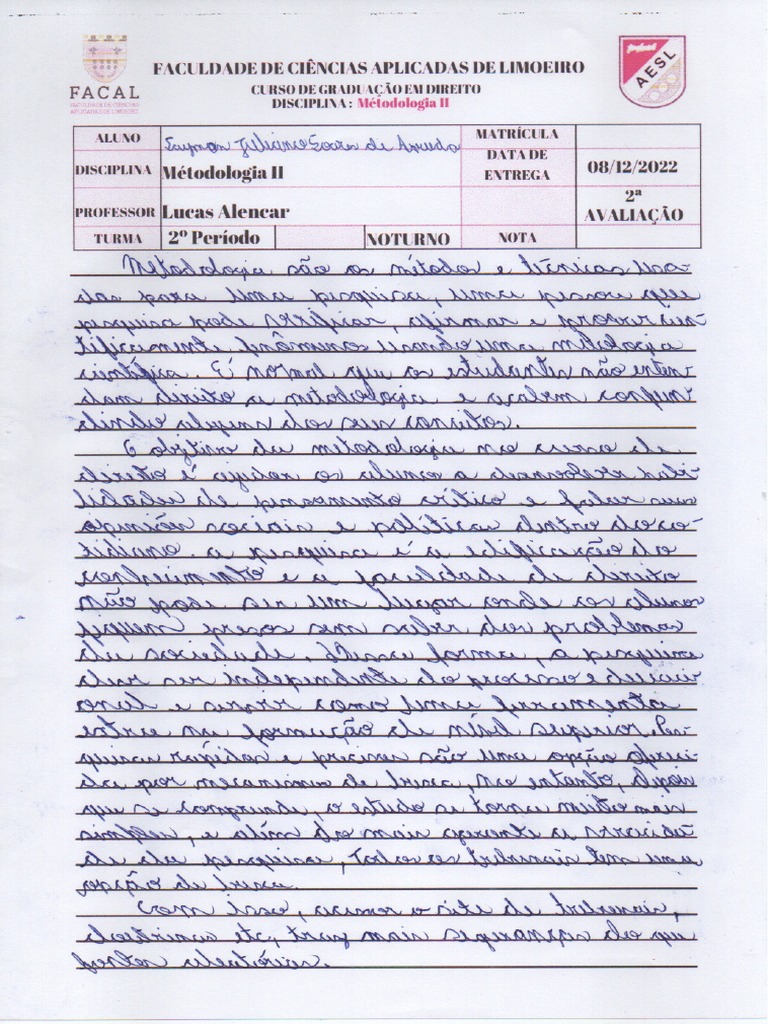 FACULDADE DE CIÊNCIAS APLICADAS DE LIMOEIRO
CURSO DE GRADUAÇÃO EM DIREITO
DISCIPLINA : Métodologia II
FACAL
FACULDADE DE CIÊNCIAS
APLICADAS DE LIMOEIRO
AESL
ALUNO Juliano Soares de Arruda MATRÍCULA
DISCIPLINA Métodologia II DATA DE ENTREGA 08/12/2022
PROFESSOR Lucas Alencar 2ª AVALIAÇÃO
TURMA 2º Período NOTURNO NOTA
Metodologia são os métodos e técnicas usa-
das para uma pesquisa, uma pessoa que
pesquisa pode verificar, afirmar e provar cien-
tificamente fenômenos usando uma metodologia
científica. É normal que os estudantes não enten-
dam direito a metodologia e acabem confun-
dindo alguns dos seus conceitos.
O objetivo da metodologia no curso de
direito é ajudar o aluno a desenvolver habi-
lidades de pensamento crítico e falar suas
opiniões sociais e políticas dentro do co-
tidiano. a pesquisa é a edificação do
conhecimento e a faculdade de direito
não pode ser um lugar onde os alunos
fiquem presos sem saber dos problemas
da sociedade. Dessa forma, a pesquisa
deve ser independente do processo educaci-
onal e servir como uma ferramenta
extra na formação de nível superior. Pes-
quisas rápidas e precisas são uma opção ofereci-
da por mecanismos de busca, No entanto, depois
que se compreende, o estudo se torna muito mais
simples, e além do mais aparente a veracida-
de da pesquisa, todos os tribunais tem uma
opção de busca.
Com isso, acessar o site de tribunais,
doutrinas etc, traz mais segurança do que
fontes aleatórias.